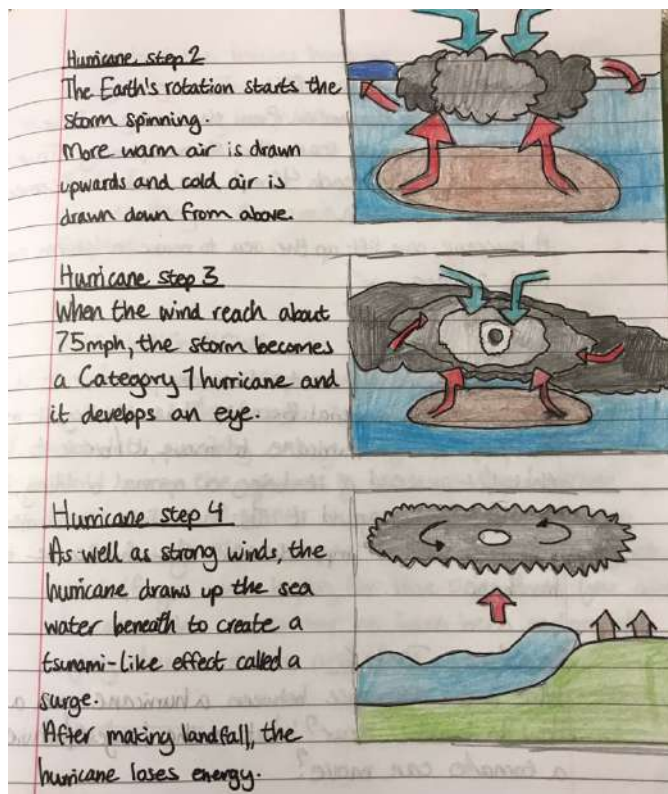 Hurricane step 2
The Earth's rotation starts the
storm spinning.
More warm air is drawn
upwards and cold air is
drawn down from above.
Hurricane step 3
When the wind reach about
75mph, the storm becomes
a Category 1 hurricane and
it develops an eye.
Hurricane step 4
As well as strong winds, the
hurricane draws up the sea
water beneath to create a
tsunami-like effect called a
surge.
After making landfall, the
hurricane loses energy.